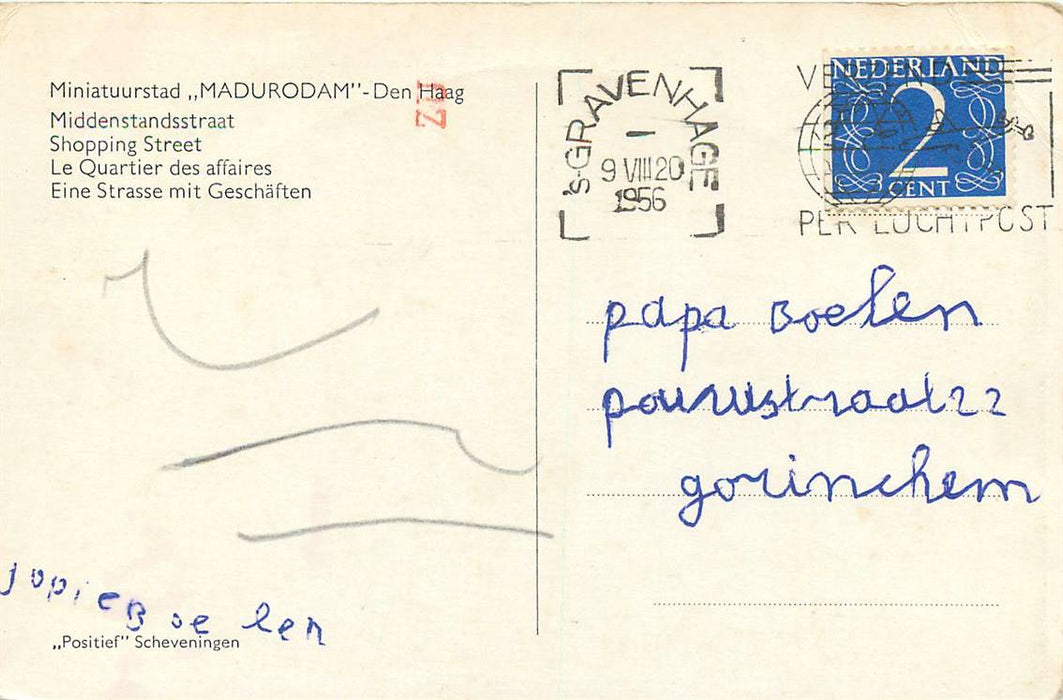 Miniatuurstad „MADURODAM”-Den Haag
Middenstandsstraat
Shopping Street
Le Quartier des affaires
Eine Strasse mit Geschäften
's-GRAVENHAGE
9 VIII 20
1956
NEDERLAND
2
CENT
PER LUCHTPOST
papa Boelen
22
gorinchem
jopie Boelen
„Positief” Scheveningen